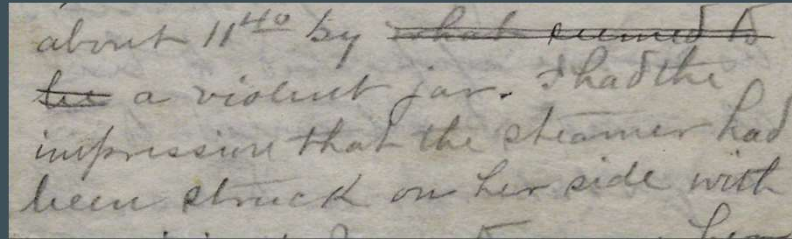 about 11⁴⁰ by what seemed to
be a violent jar. I had the
impression that the steamer had
been struck on her side with